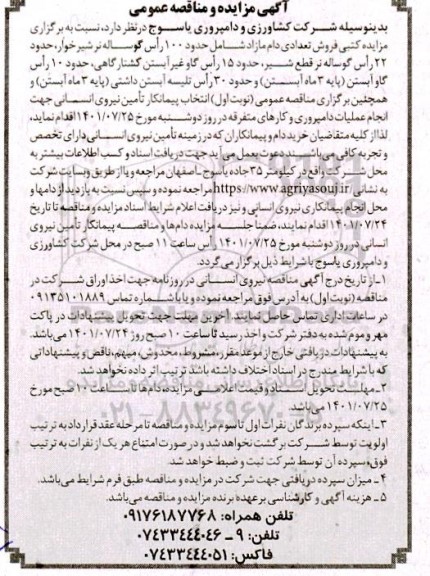 آگهی مزایده و مناقصه عمومی
بدینوسیله شرکت کشاورزی و دامپروری یاسوج در نظر دارد، نسبت به برگزاری
مزایده کتبی فروش تعدادی دام مازاد شامل حدود ۱۰۰ رأس گوساله نر شیرخوار، حدود
۲۲ رأس گوساله نر قطع شیر، حدود ۱۵ رأس گاو غیر آبستن کشتارگاهی، حدود ۱۰ رأس
گاو آبستن (پایه ۳ ماه آبستن) و حدود ۳۰ رأس تلیسه آبستن داشتی (پایه ۳ ماه آبستن) و
همچنین برگزاری مناقصه عمومی (نوبت اول) انتخاب پیمانکار تأمین نیروی انسانی جهت
انجام عملیات دامپروری و کارهای متفرقه در روز دوشنبه مورخ ۱۴۰۱/۰۷/۲۵ اقدام نماید،
لذا از کلیه متقاضیان خرید دام و پیمانکاران که در زمینه تأمین نیروی انسانی دارای تخصص
و تجربه کافی می باشند دعوت بعمل می آید جهت دریافت اسناد و کسب اطلاعات بیشتر به
محل شرکت واقع در کیلومتر ۳۵ جاده یاسوج ـ اصفهان مراجعه و یا از طریق وبسایت شرکت
به نشانی https://www.agriyasouj.ir/ مراجعه نموده و سپس نسبت به بازدید از دامها و
محل انجام پیمانکاری نیروی انسانی و نیز دریافت اعلام شرایط اسناد مزایده و مناقصه تا تاریخ
۱۴۰۱/۰۷/۲۴ اقدام نمایند، ضمناً جلسه مزایده دام ها و مناقصه پیمانکار تأمین نیروی
انسانی در روز دوشنبه مورخ ۱۴۰۱/۰۷/۲۵ رأس ساعت ۱۱ صبح در محل شرکت کشاورزی
و دامپروری یاسوج با شرایط ذیل برگزار می گردد.
۱ـ از تاریخ درج آگهی مناقصه نیروی انسانی در روزنامه جهت اخذ اوراق شرکت در
مناقصه (نوبت اول) به آدرس فوق مراجعه نموده و یا با شماره تماس ۰۹۱۳۵۱۰۱۸۸۹
در ساعات اداری تماس حاصل نمایند. آخرین مهلت جهت تحویل پیشنهادات در پاکت
مهر و موم شده به دفتر شرکت و اخذ رسید تا ساعت ۱۰ صبح روز ۱۴۰۱/۰۷/۲۴ می باشد.
به پیشنهادات دریافتی خارج از موعد مقرر، مشروط، مخدوش، مبهم، ناقص و پیشنهاداتی
که با شرایط مندرج در اسناد اختلاف داشته باشد ترتیب اثر داده نخواهد شد.
۲ـ مهلت تحویل اسناد و قیمت اعلامی مزایده دام ها تا ساعت ۱۰ صبح مورخ
۱۴۰۱/۰۷/۲۵ می باشد.
۳ـ اینکه سپرده برندگان نفرات اول تا سوم مزایده و مناقصه تا مرحله عقد قرارداد به ترتیب
اولویت توسط شرکت برگشت نخواهد شد و در صورت امتناع هر یک از نفرات به ترتیب
فوق، سپرده آن توسط شرکت ثبت و ضبط خواهد شد.
۴ـ میزان سپرده دریافتی جهت شرکت در مزایده و مناقصه طبق فرم شرایط می باشد.
۵ـ هزینه آگهی و کارشناسی بر عهده برنده مزایده و مناقصه می باشد.
تلفن همراه: ۰۹۱۷۶۱۸۷۷۶۸
تلفن: ۹ ـ ۰۷۴۳۳۴۴۴۰۴۶
فاکس: ۰۷۴۳۳۴۴۴۰۵۱
۰۲۱-۸۸۳۴۹۶۷۰